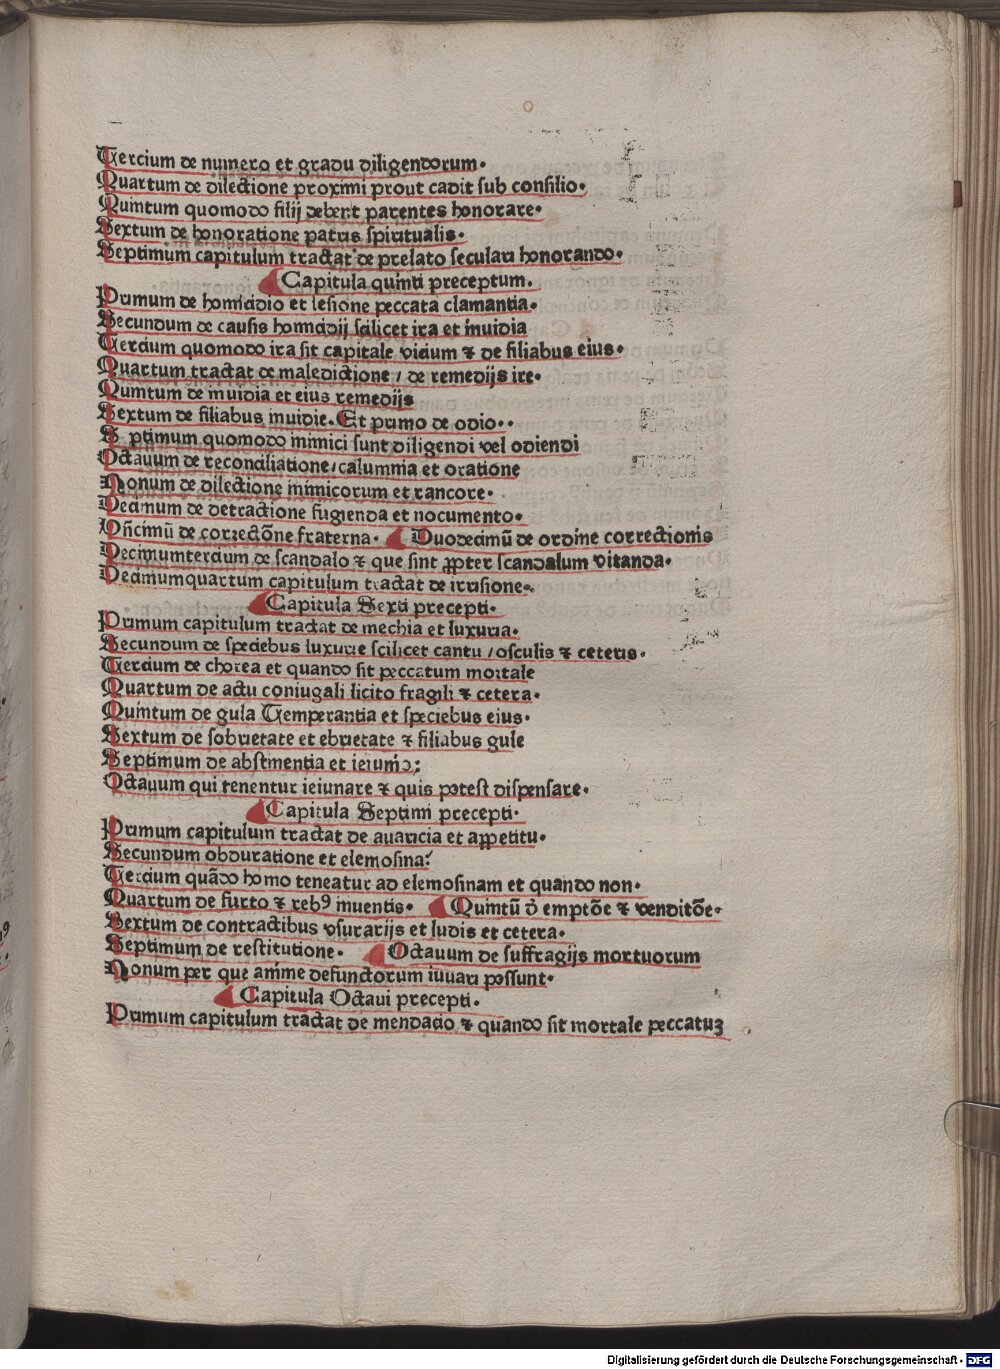 Tercium de numero et gradu diligendorum.
Quartum de dilectione proximi prout cadit sub consilio.
Quintum quomodo filij debent parentes honorare.
Sextum de honoratione patris spiritualis.
Septimum capitulum tractat de prelato seculari honorando.
Capitula quinti preceptum.
Primum de homicidio et lesione peccata clamantia.
Secundum de causis homicidij scilicet ira et inuidia
Tercium quomodo ira sit capitale vicium ⁊ de filiabus eius.
Quartum tractat de maledictione / de remedijs ire.
Quintum de inuidia et eius remedijs
Sextum de filiabus inuidie. Et primo de odio..
S ptimum quomodo inimici sunt diligendi vel odiendi
Octauum de reconciliatione / calumnia et oratione
Nonum de dilectione inimicorum et rancore.
Decimum de detractione fugienda et nocumento.
Vñcimũ de correctõne fraterna. Duodecimũ de ordine correctionis
Decimumtercium de scandalo ⁊ que sint ꝓpter scandalum vitanda.
Decimumquartum capitulum tractat de irrisione.
Capitula Sexti precepti.
Primum capitulum tractat de mechia et luxuria.
Secundum de speciebus luxurie scilicet cantu / osculis ⁊ ceteris.
Tercium de chorea et quando sit peccatum mortale
Quartum de actu coniugali licito fragili ⁊ cetera.
Quintum de gula Temperantia et speciebus eius.
Sextum de sobrietate et ebrietate ⁊ filiabus gule
Septimum de abstinentia et ieiunio:
Octauum qui tenentur ieiunare ⁊ quis potest dispensare.
Capitula Septimi precepti.
Primum capitulum tractat de auaricia et appetitu.
Secundum obduratione et elemosina:
Tercium quãdo homo teneatur ad elemosinam et quando non.
Quartum de furto ⁊ rebꝰ inuentis. Quintũ ð emptõe ⁊ venditõe.
Sextum de contractibus vsurarijs et ludis et cetera.
Septimum de restitutione. Octauum de suffragijs mortuorum
Nonum per que anime defunctorum iuuari possunt.
Capitula Octaui precepti.
Primum capitulum tractat de mendacio ⁊ quando sit mortale peccatuꝫ
Digitalisierung gefördert durch die Deutsche Forschungsgemeinschaft - DFG